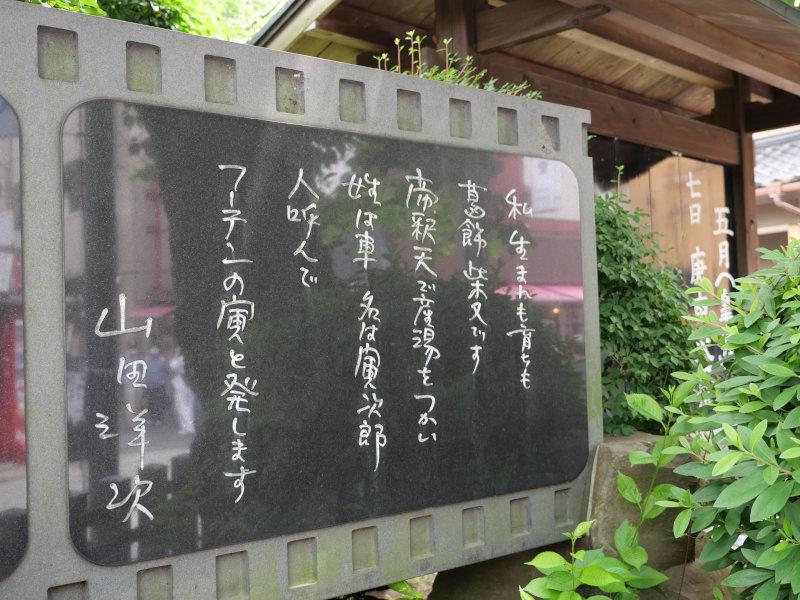 私 生まれも育ちも
葛飾 柴又です
帝釈天で産湯をつかい
姓は車 名は寅次郎
人呼んで
フーテンの寅と発します
山田洋次
五月へ
七日 庚